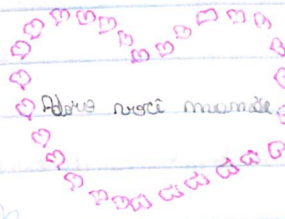 Adoro você mamãe